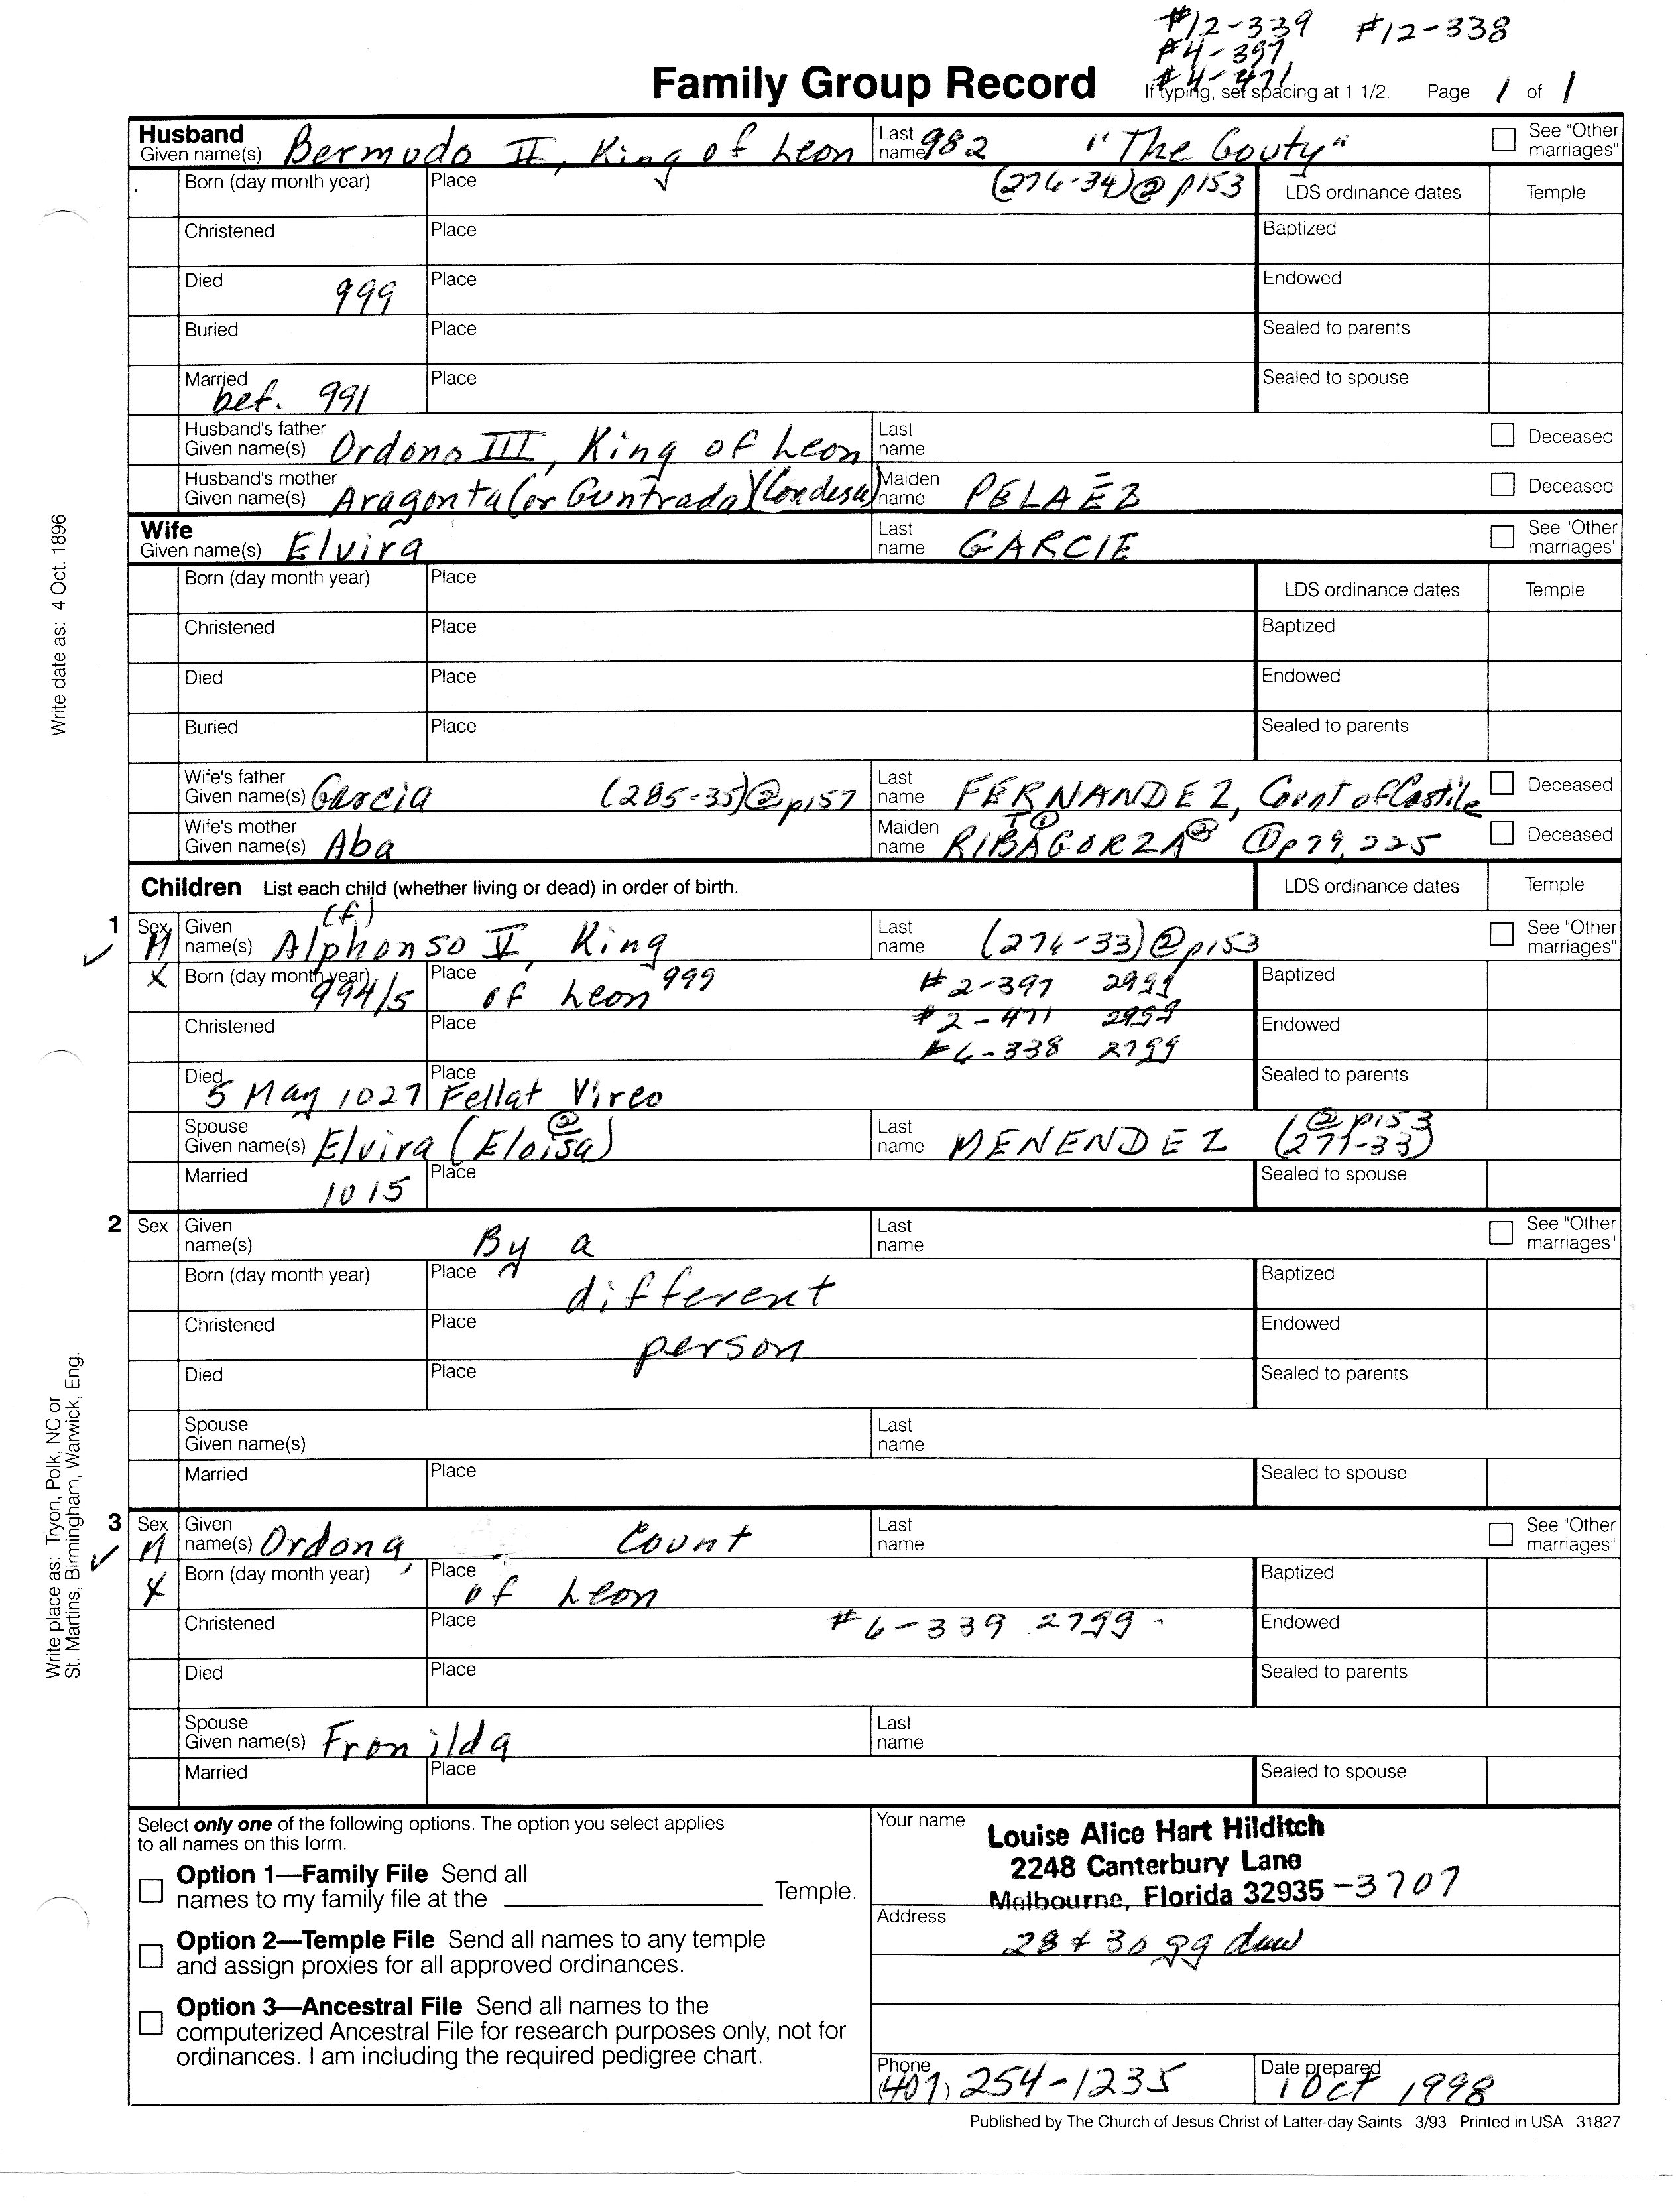 #12-339 #12-338
#4-397
#4-471
Family Group Record If typing, set spacing at 1 1/2. Page 1 of 1
Husband Given name(s) Bermudo II, King of Leon Last name 982 "The Gouty" See "Other marriages"
Born (day month year) Place (276-34)@ p153 LDS ordinance dates Temple
Christened Place Baptized
Died 999 Place Endowed
Buried Place Sealed to parents
Married bef. 991 Place Sealed to spouse
Husband's father Given name(s) Ordono III, King of Leon Last name Deceased
Husband's mother Given name(s) Aragonta (or Guntrada) (Condesa) Maiden name PELAEZ Deceased
Wife Given name(s) Elvira Last name GARCIE See "Other marriages"
Born (day month year) Place LDS ordinance dates Temple
Christened Place Baptized
Died Place Endowed
Buried Place Sealed to parents
Wife's father Given name(s) Garcia (285-35)② p157 Last name FERNANDEZ, Count of Castile Deceased
Wife's mother Given name(s) Aba Maiden name RIBAGORZA ② ① p79, 225 Deceased
Children List each child (whether living or dead) in order of birth. LDS ordinance dates Temple
(f)
1 Sex M Given name(s) Alphonso V, King Last name (276-33)② p153 See "Other marriages"
X Born (day month year) 994/5 Place of Leon 999 #2-397 2999 Baptized
Christened Place #2-471 2999 Endowed
#6-338 2799
Died 5 May 1027 Place Fellat Vireo Sealed to parents
Spouse Given name(s) Elvira (Eloisa) ② Last name MENENDEZ ② p153 (277-33)
Married 1015 Place Sealed to spouse
2 Sex Given name(s) By a Last name See "Other marriages"
Born (day month year) Place different Baptized
Christened Place person Endowed
Died Place Sealed to parents
Spouse Given name(s) Last name
Married Place Sealed to spouse
3 Sex M Given name(s) Ordona, Count Last name See "Other marriages"
X Born (day month year) Place of Leon Baptized
Christened Place #6-339 2799 - Endowed
Died Place Sealed to parents
Spouse Given name(s) Fronilda Last name
Married Place Sealed to spouse
Select only one of the following options. The option you select applies
to all names on this form.
Option 1—Family File Send all
names to my family file at the Temple.
Option 2—Temple File Send all names to any temple
and assign proxies for all approved ordinances.
Option 3—Ancestral File Send all names to the
computerized Ancestral File for research purposes only, not for
ordinances. I am including the required pedigree chart.
Your name Louise Alice Hart Hilditch
2248 Canterbury Lane
Melbourne, Florida 32935 -3707
Address
28 & 30 gg dau
Phone (407) 254-1235 Date prepared 1 Oct 1998
Published by The Church of Jesus Christ of Latter-day Saints 3/93 Printed in USA 31827
Write date as: 4 Oct. 1896
Write place as: Tryon, Polk, NC or
St. Martins, Birmingham, Warwick, Eng.